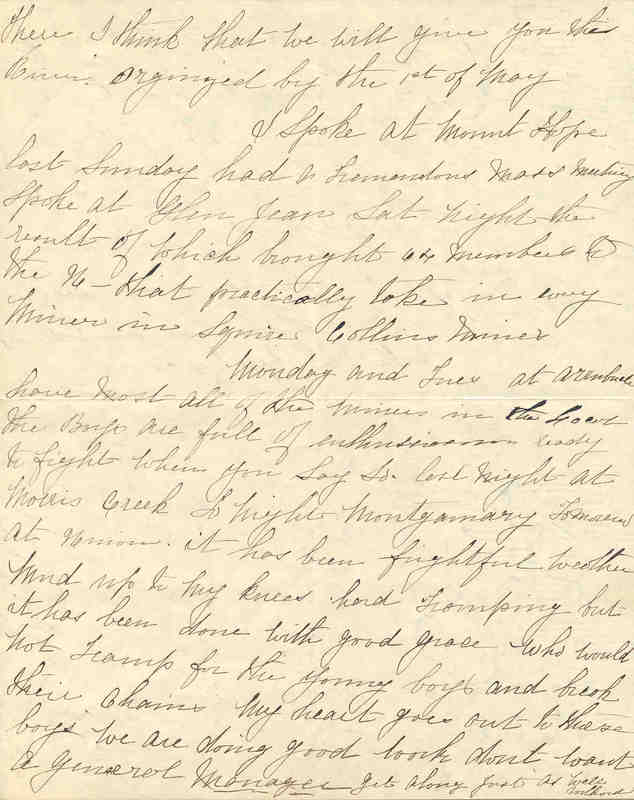 there I think that we will give you this
River orginized by the 1st of May
I Spoke at Mount Hope
last Sunday had a tremendous Mass Meeting
Spoke at Glen Jean Sat night the
result of which brought 64 members to
the that practically take in every
Miner in Squire Collins Mines
Monday and Tues at
have most all of the Miners in the Local
the Boys are full of enthusiasm ready
to fight when you Say So. last night at
Morris Creek to Night Montgamary Tomorow
at it has been frightful weather
Mud up to My Knees hard Tramping but
it has been done with good grace who would
not Tramp for the young boys and break
their Chains My heart goes out to these
boys we are doing good work dont want
a General Manager get along just as well
without